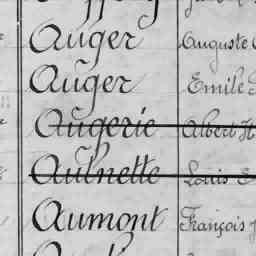 Auger Auguste
Auger Emile
Augerie Albert H
Aulnette Louis E
Aumont François J